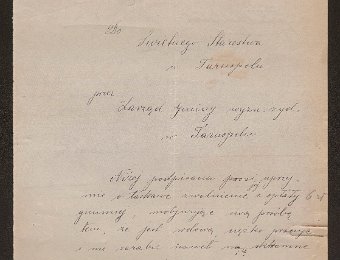 Do
Świetnego Starostwa
w Tarnopolu
przez
Zarząd Gminy wyzn. żyd.
w Tarnopolu
Niżej podpisana prosi uprzej
mie o łaskawe zwolnienie z opłaty
gminnej, motywując swą prośbę
tem, że jest wdową, ciężko pracuje
i nie zarabia nawet na